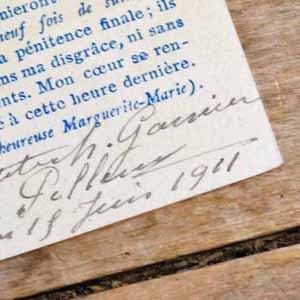 nieront
neuf fois de su
a pénitence finale; ils
ns ma disgrâce, ni sans
nts. Mon cœur se ren-
é à cette heure dernière.
heureuse Marguerite-Marie).
h. Garnier
15 Juin 1911